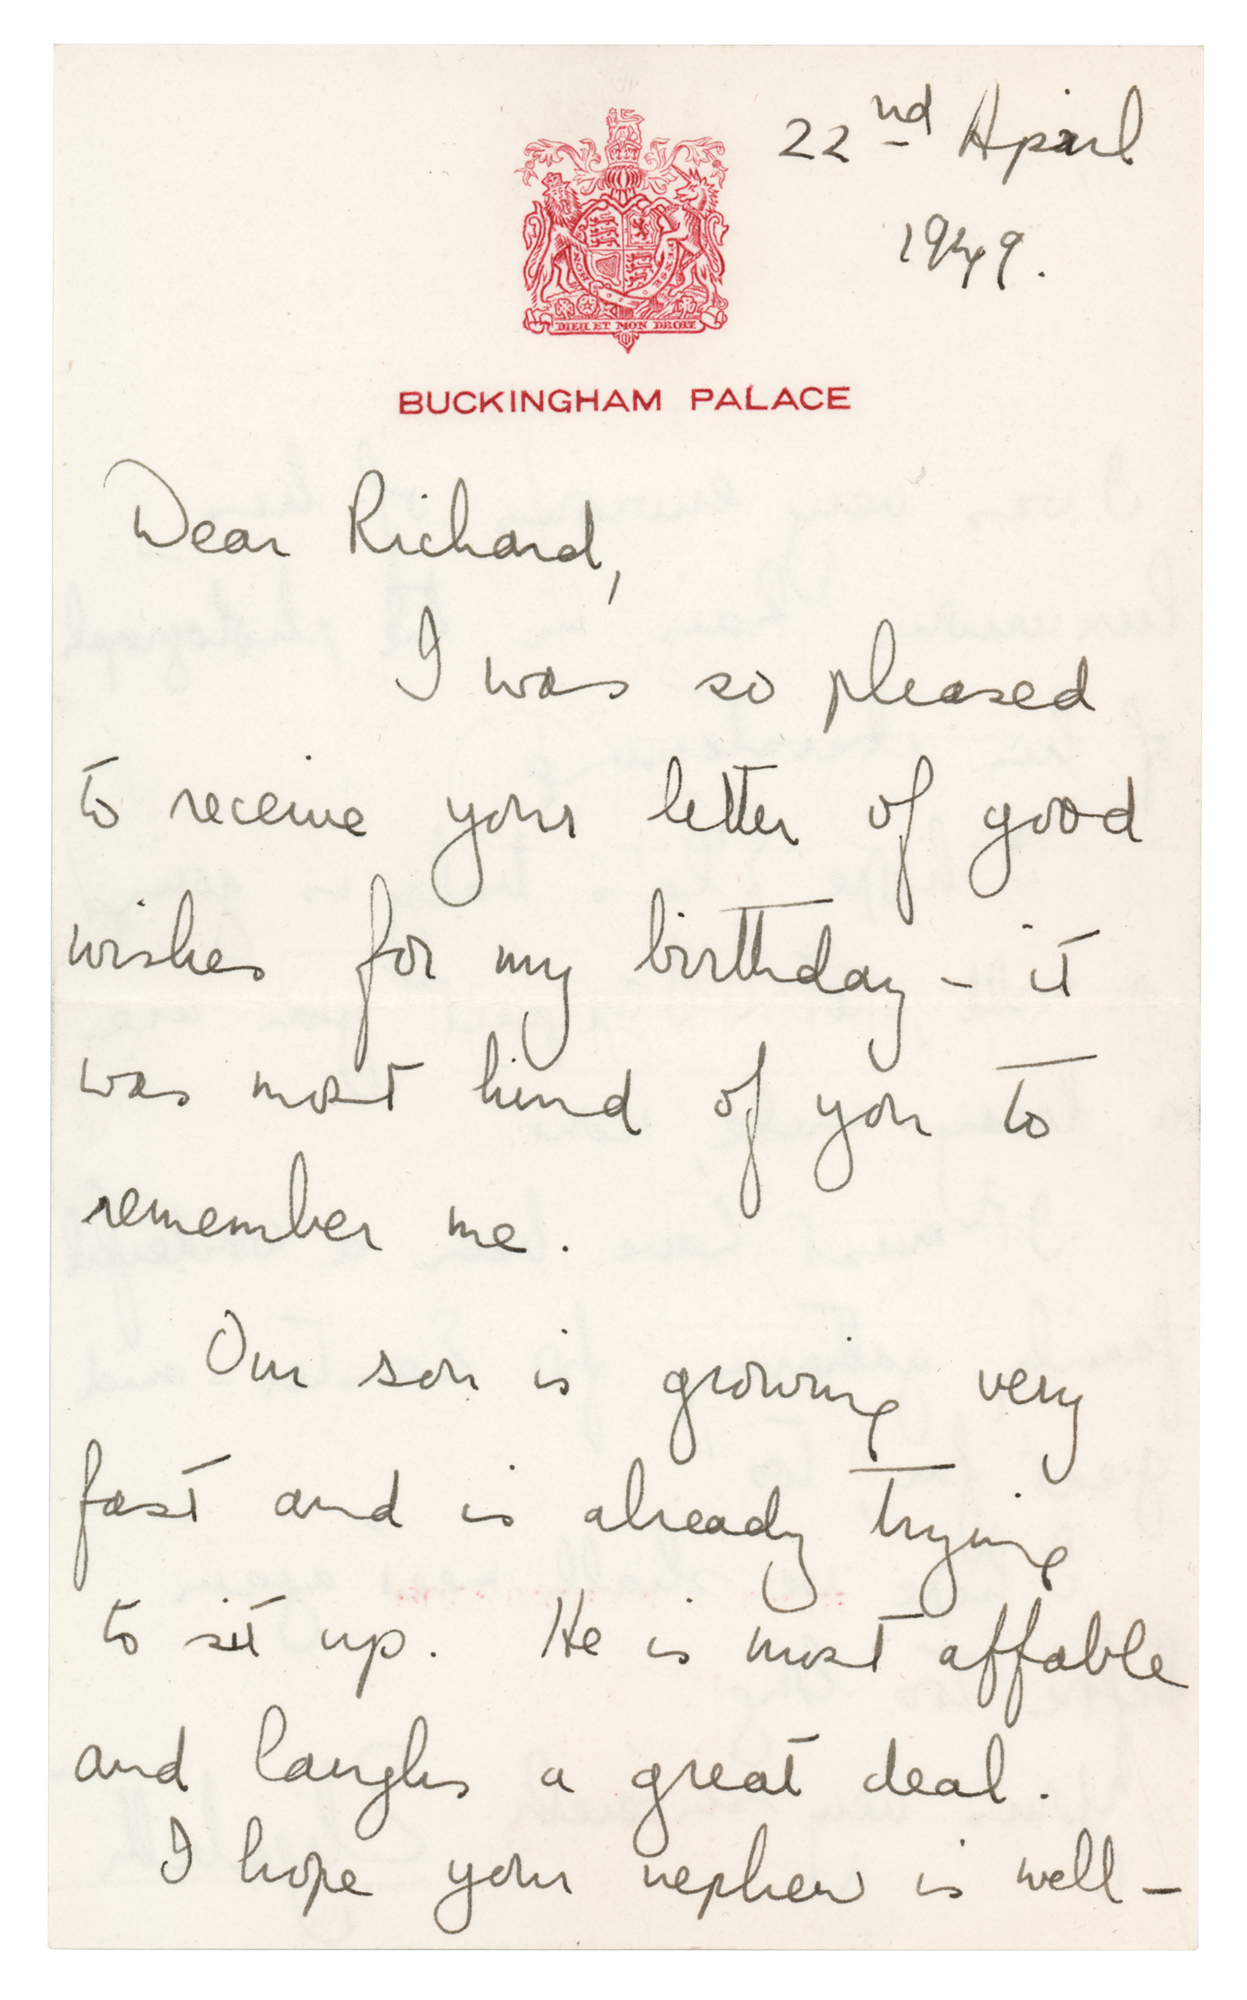 22nd April
1949.
DIEU ET MON DROIT
BUCKINGHAM PALACE
Dear Richard,
I was so pleased
to receive your letter of good
wishes for my birthday – it
was most kind of you to
remember me.
Our son is growing very
fast and is already trying
to sit up. He is most affable
and laughs a great deal.
I hope your nephew is well –